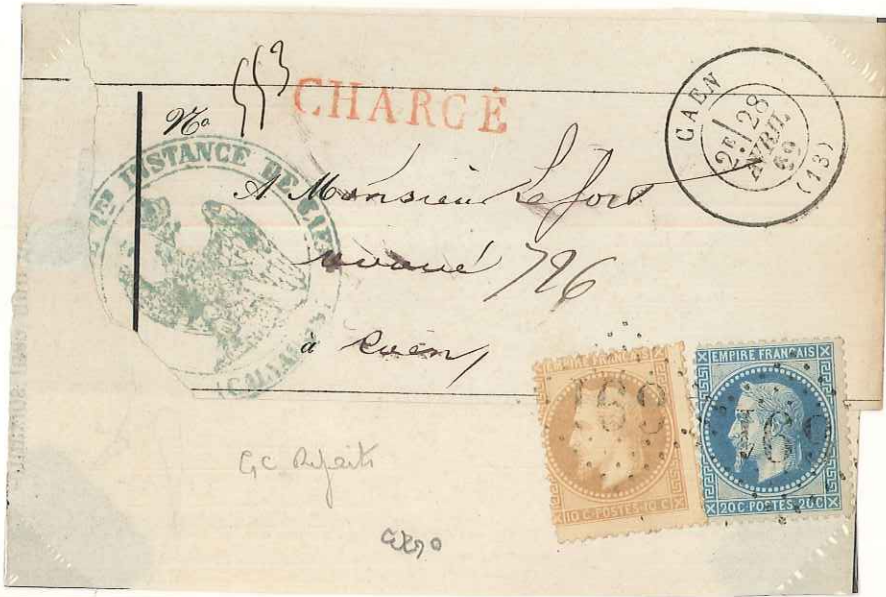 No 553
CHARGÉ
CAEN
2E/ 28
AVRIL
69
(13)
INSTANCE DE
(CALVADOS)
A Monsieur Lefort
avoué 726
à Caen
EMPIRE FRANÇAIS
10 C·POSTES·10 C
EMPIRE FRANÇAIS
20 C·POSTES·20 C
GC Refaits